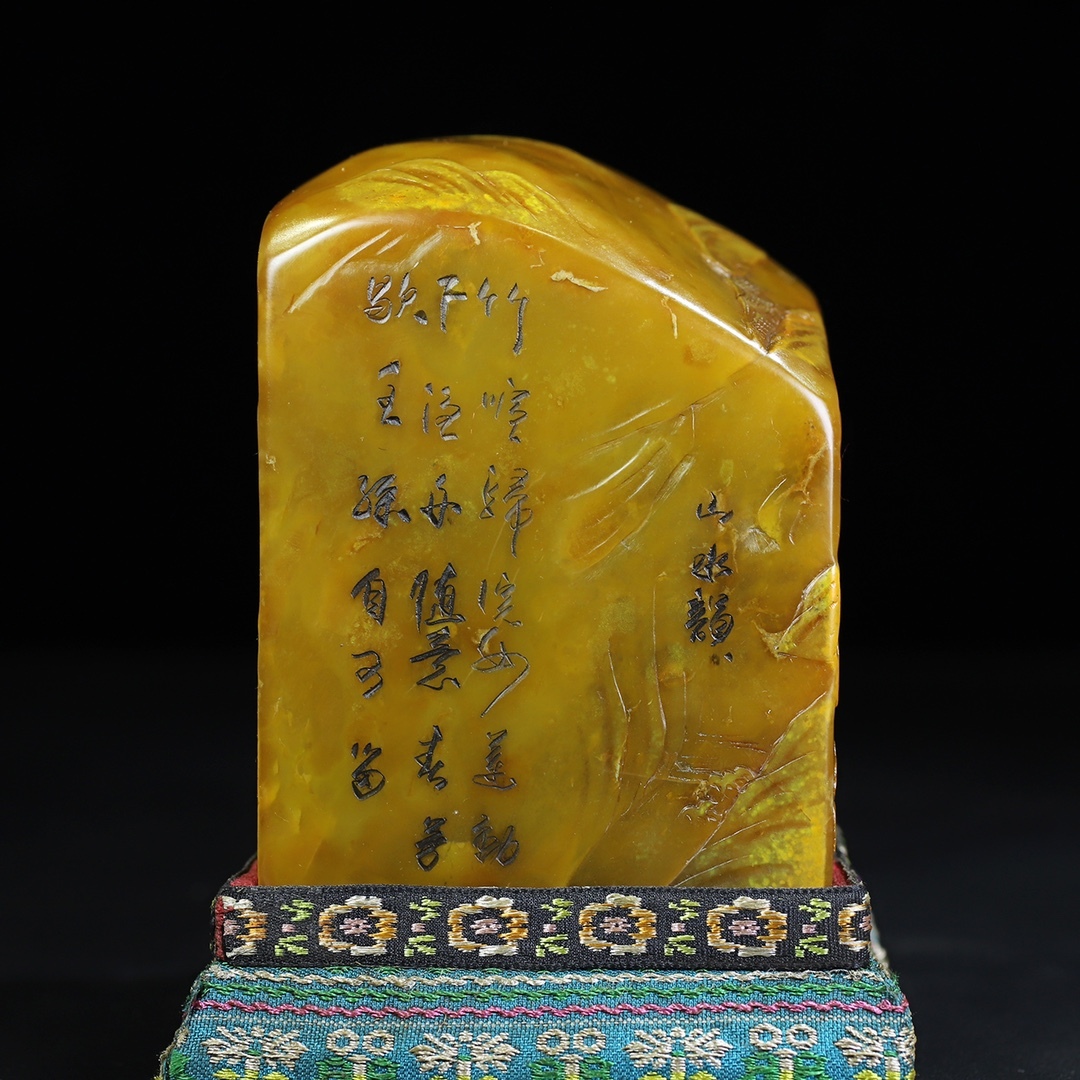 山水韻
竹喧歸浣女蓮動
下漁舟隨意春芳
歇王孫自可留